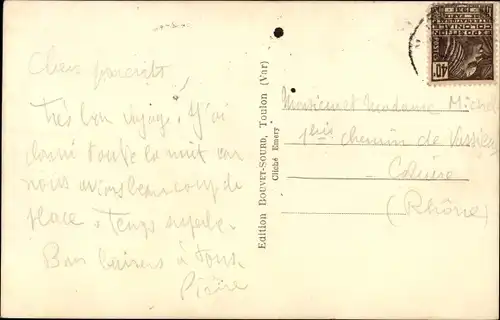 Chers parents
Très bon voyage. J'ai
dormi toute la nuit car
nous avions beaucoup de
place. Temps superbe.
Bons baisers à tous.
Pierre
Edition BOUVET-SOURD, Toulon (Var)
Cliché Emery
Monsieur et Madame Michel
chemin de
(Rhône)